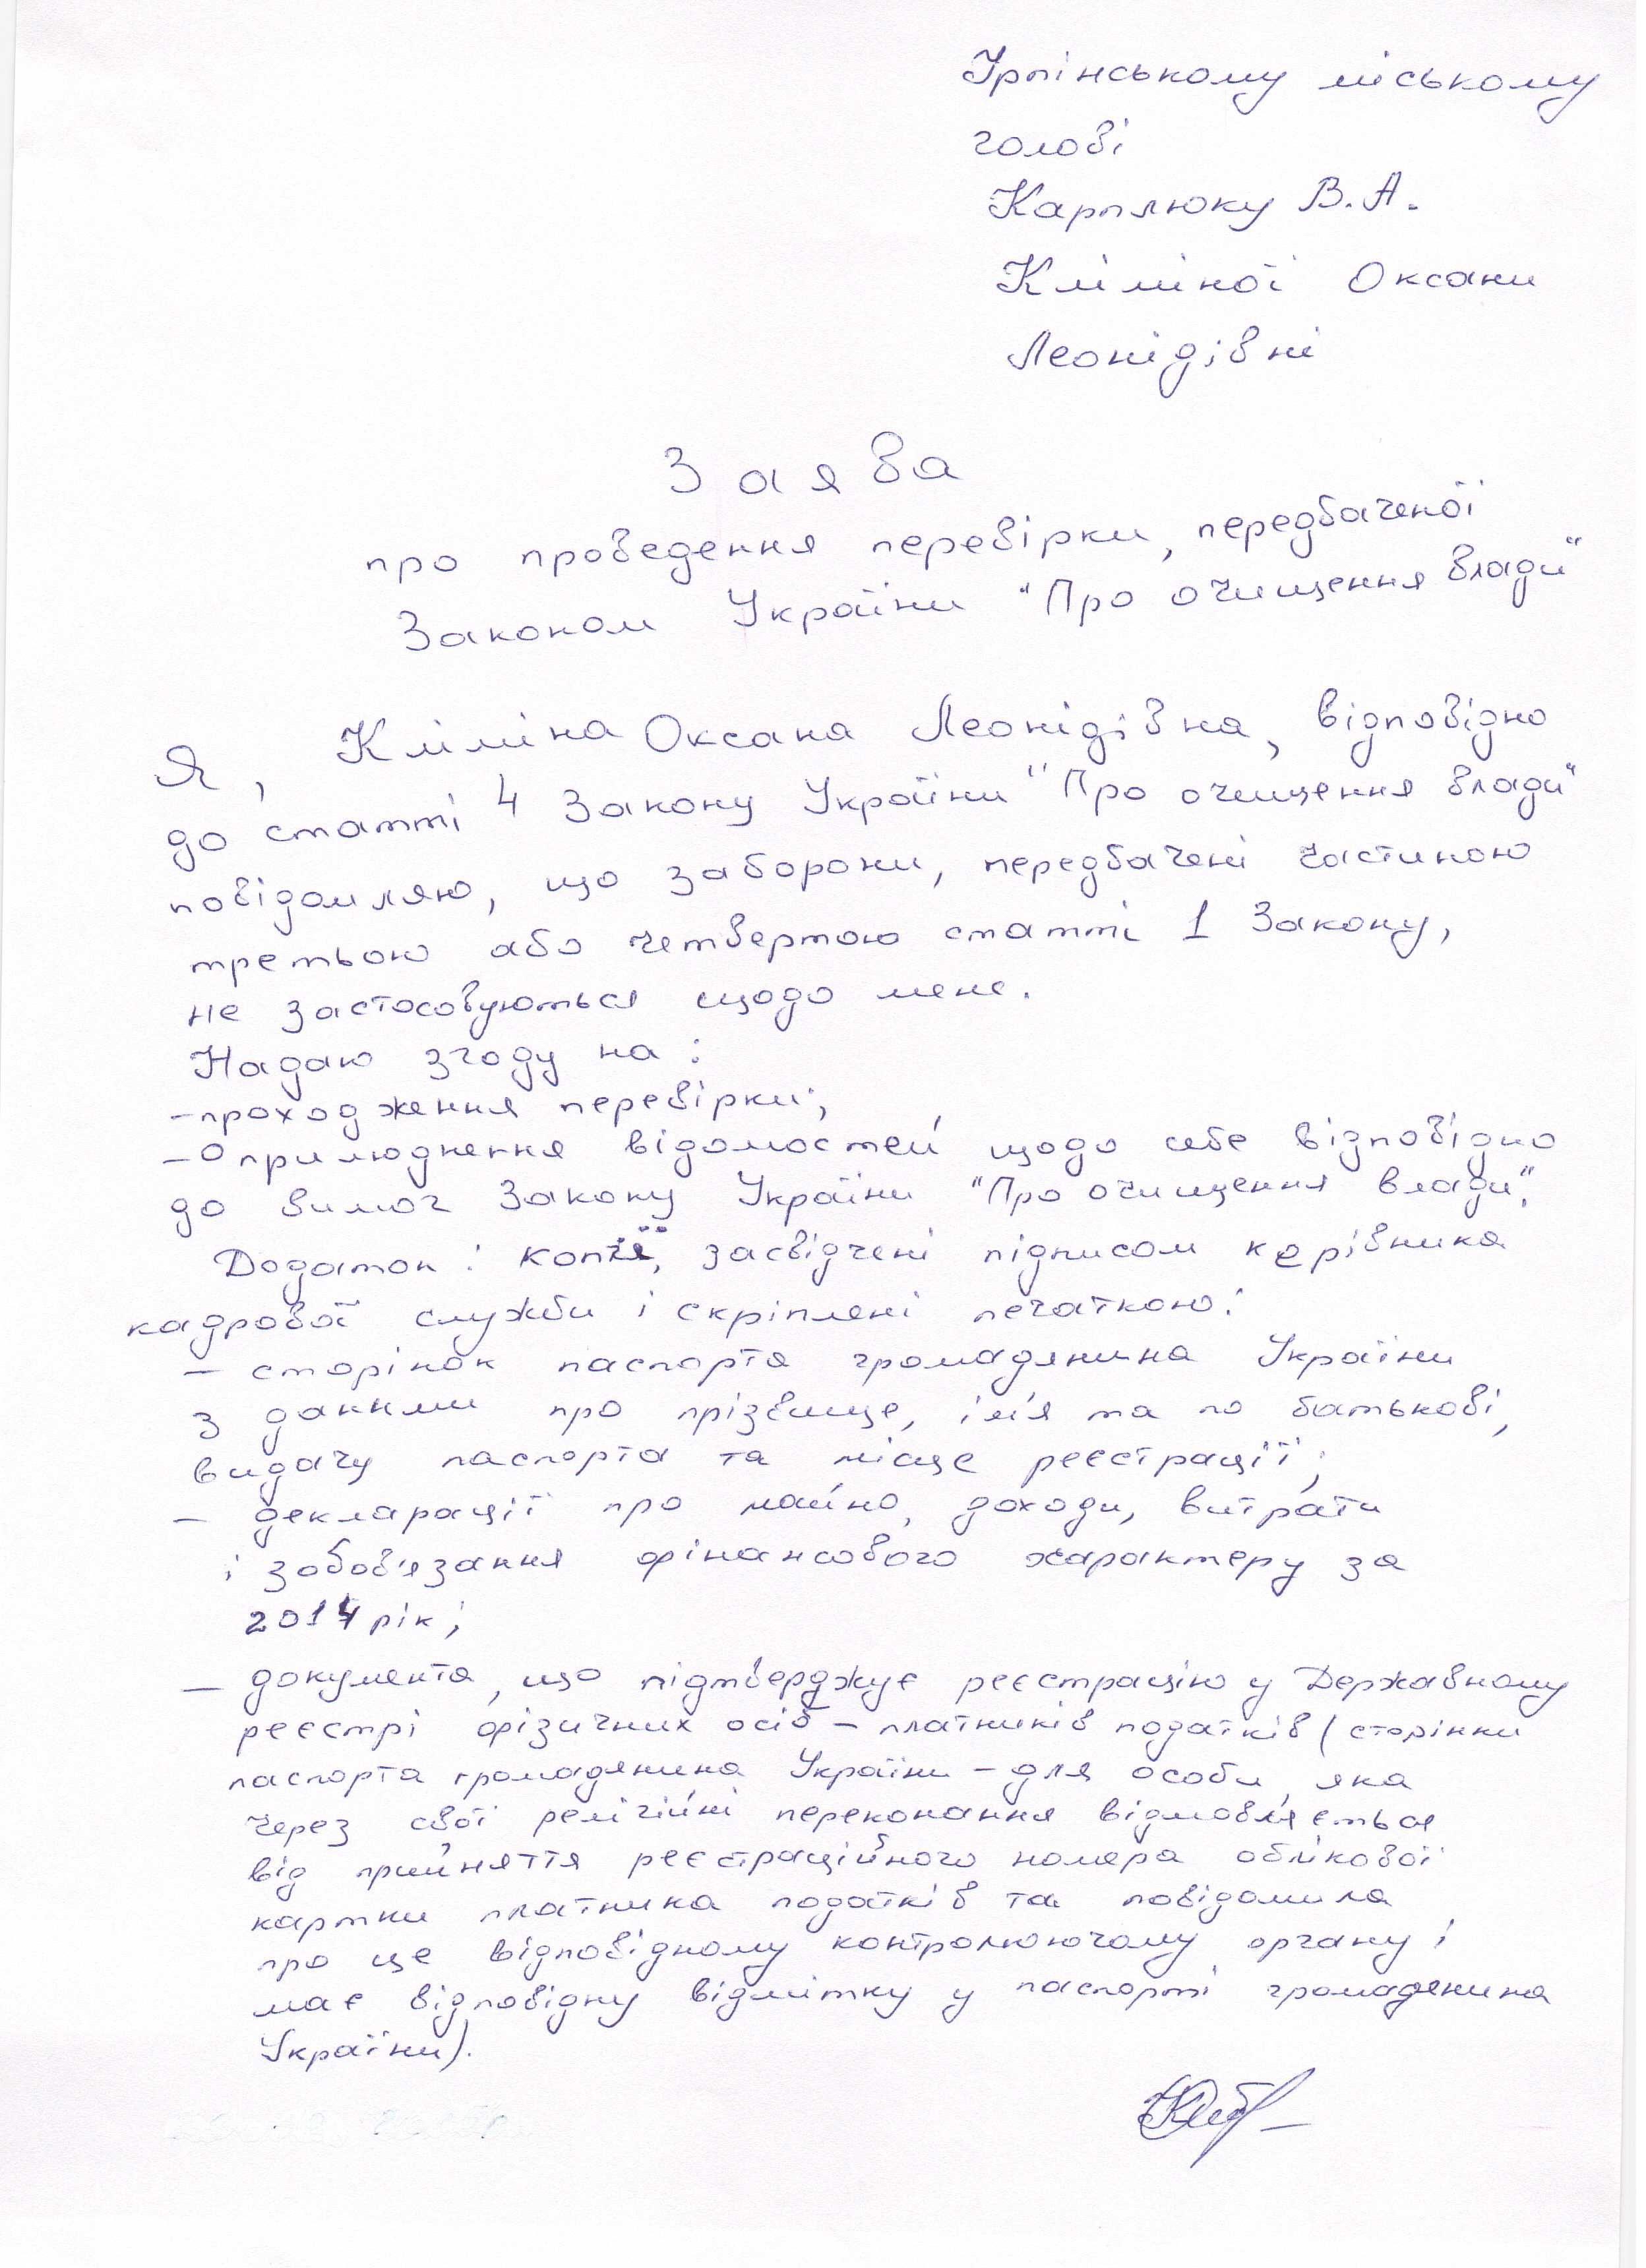 Ірпінському міському
голові
Карплюку В.А.
Кліміної Оксани
Леонідівні
Заява
про проведення перевірки, передбаченої
Законом України "Про очищення влади"
Я, Кліміна Оксана Леонідівна, відповідно
до статті 4 Закону України "Про очищення влади"
повідомляю, що заборони, передбачені частиною
третьою або четвертою статті 1 Закону,
не застосовуються щодо мене.
Надаю згоду на:
-проходження перевірки;
-Оприлюднення відомостей щодо себе відповідно
до вимог Закону України "Про очищення влади".
Додаток: копії, засвідчені підписом керівника
кадрової служби і скріплені печаткою:
- сторінок паспорта громадянина України
з даними про прізвище, ім'я та по батькові,
видачу паспорта та місце реєстрації;
- декларації про майно, доходи, витрати
і зобов'язання фінансового характеру за
2014 рік;
- документа, що підтверджує реєстрацію у Державному
реєстрі фізичних осіб - платників податків (сторінки
паспорта громадянина України - для особи, яка
через свої релігійні переконання відмовляється
від прийняття реєстраційного номера облікової
картки платника податків та повідомила
про це відповідному контролюючому органу і
має відповідну відмітку у паспорті громадянина
України).